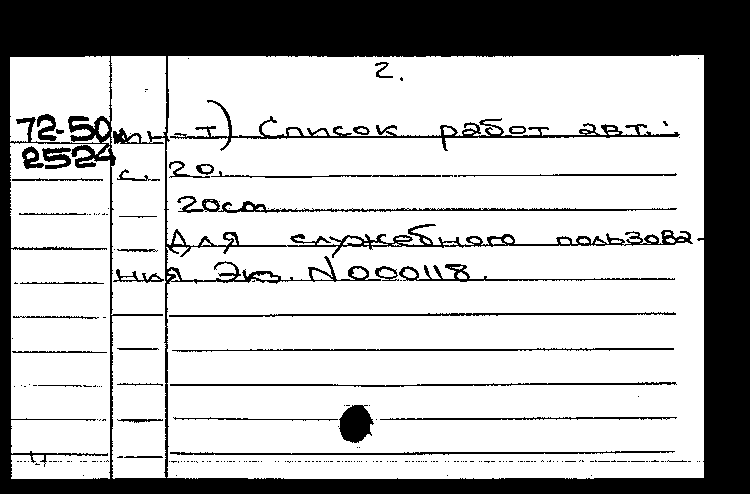 2.
72-50 ин-т) Список работ авт.:
2524 с. 20.
20см
Для служебного пользова-
ния. Экз. N000118.